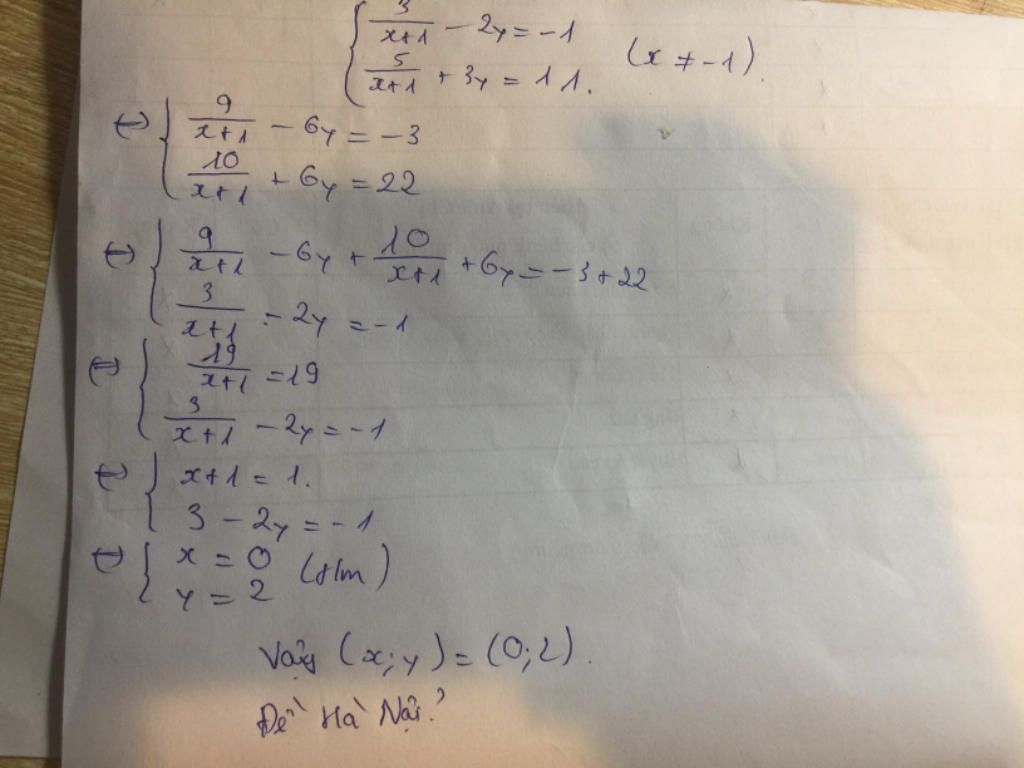 { 3/(x+1) - 2y = -1
{ 5/(x+1) + 3y = 11. (x ≠ -1).
⇔ { 9/(x+1) - 6y = -3
{ 10/(x+1) + 6y = 22
⇔ { 9/(x+1) - 6y + 10/(x+1) + 6y = -3+22
{ 3/(x+1) - 2y = -1
⇔ { 19/(x+1) = 19
{ 3/(x+1) - 2y = -1
⇔ { x+1 = 1.
{ 3 - 2y = -1
⇔ { x = 0 (t/m)
{ y = 2
Vậy (x;y) = (0;2).
Đề Hà Nội?